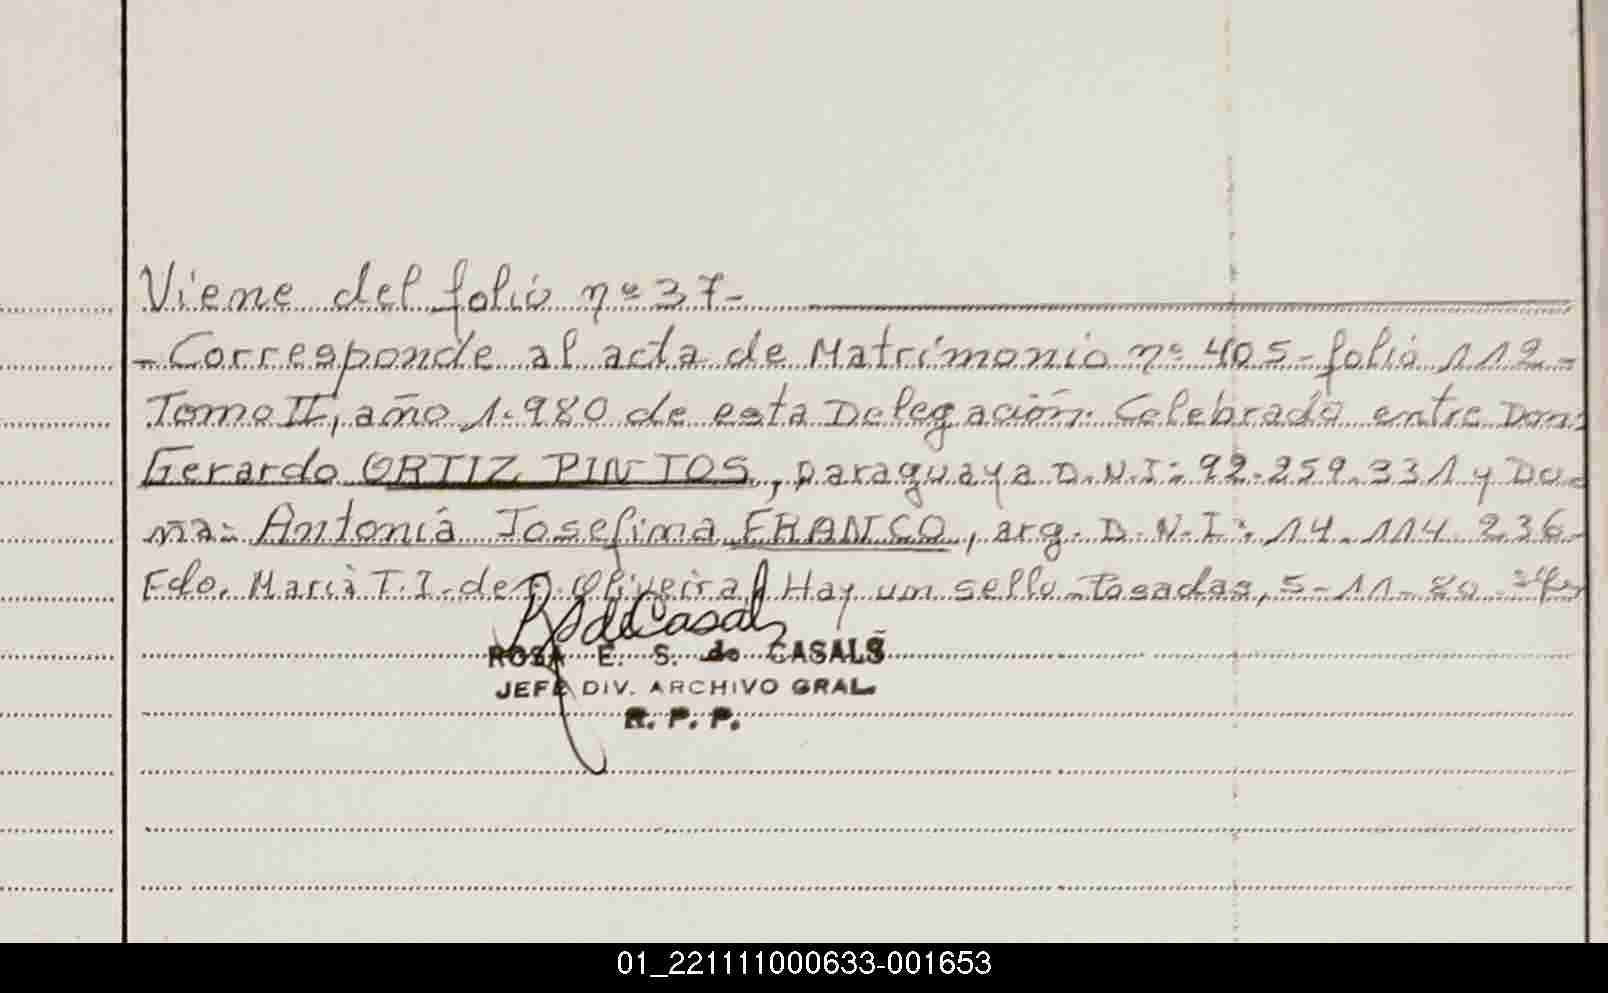 Viene del folio nº 37-
- Corresponde al acta de Matrimonio nº 405 - folio 112 -
Tomo II, año 1.980 de esta Delegación. Celebrado entre Don:
Gerardo ORTIZ PINTOS, paraguaya D.N.I: 92.259.331 y Do-
ña: Antonia Josefina FRANCO, arg. D.N.I: 14.114.236-
Fdo. Maria T.I. de Oliveira/ Hay un sello - Posadas, 5-11-80.
R S de Casals
ROSA E. S. de CASALS
JEFE DIV. ARCHIVO GRAL.
R. P. P.
01_221111000633-001653